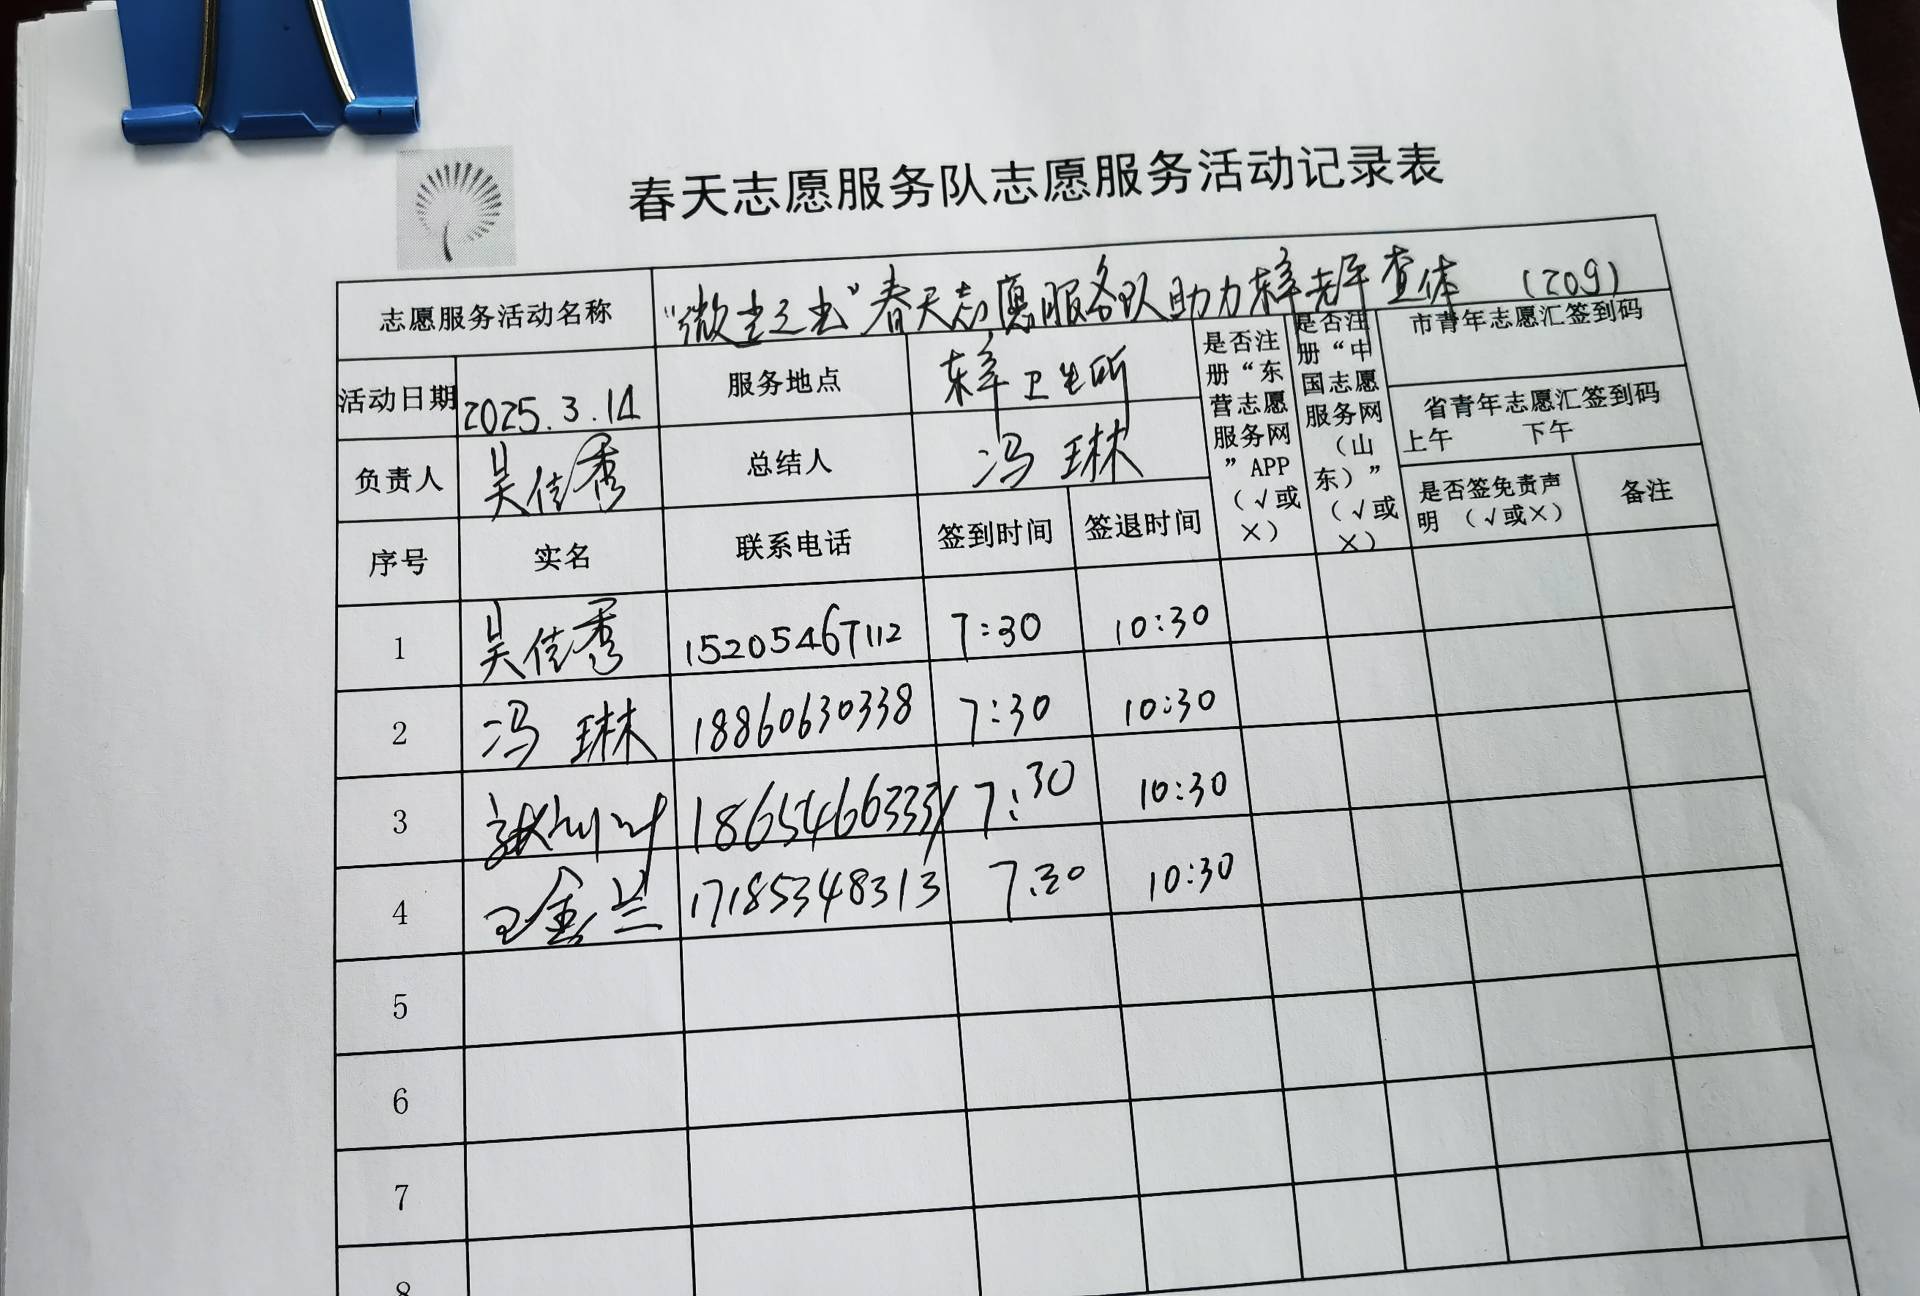 春天志愿服务队志愿服务活动记录表
志愿服务活动名称 "微尘之光"春天志愿服务队助力东辛老年查体 (209)
活动日期 2025.3.14 服务地点 东辛卫生所
是否注册"东营志愿服务网"APP(√或×)
是否注册"中国志愿服务网(山东)"(√或×)
市青年志愿汇签到码
省青年志愿汇签到码
上午 下午
负责人 吴佳秀 总结人 冯琳
是否签免责声明 (√或×) 备注
序号 实名 联系电话 签到时间 签退时间
1 吴佳秀 15205467112 7:30 10:30
2 冯琳 18860630338 7:30 10:30
3 1865466333 7:30 10:30
4 王金兰 17185348313 7.30 10:30
5
6
7
8